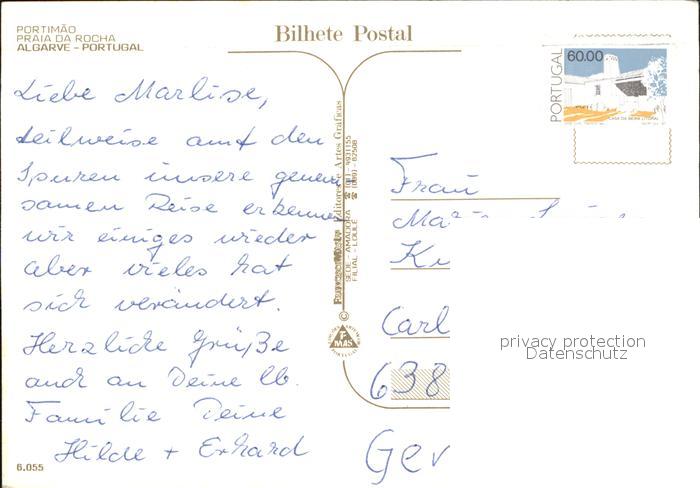 PORTIMÃO
PRAIA DA ROCHA
ALGARVE – PORTUGAL
Bilhete Postal
PORTUGAL
60.00
CASA DA BEIRA LITORAL
Liebe Marlise,
teilweise auf den
Spuren unsere gemein
samen Reise erkennen
wir einiges wieder
aber vieles hat
sich verändert.
Herzliche Grüße
auch an Deine lb.
Familie Deine
Hilde + Erhard
Editores de Artes Gráficas
SEDE - AMADORA ☎ (01) 4931155
FILIAL - LOULÉ ☎ (089) 62508
F
MAS
PORTUGAL
Frau
Carl
638
Ger
privacy protection
Datenschutz
6.055